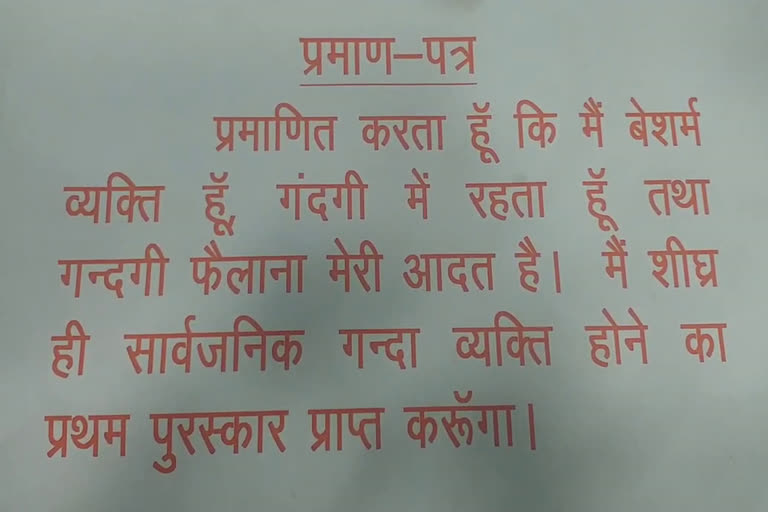 प्रमाण–पत्र
प्रमाणित करता हूॅ कि मैं बेशर्म
व्यक्ति हूॅ गंदगी में रहता हूॅ तथा
गन्दगी फैलाना मेरी आदत है। मैं शीघ्र
ही सार्वजनिक गन्दा व्यक्ति होने का
प्रथम पुरस्कार प्राप्त करूॅगा।